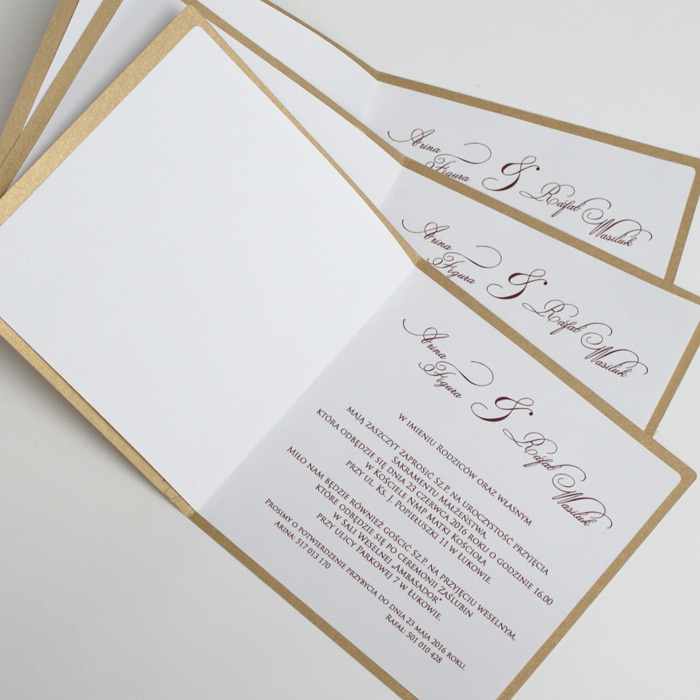 Arina
Figura
&
Rafał
Wasiluk
Arina
Figura
&
Rafał
Wasiluk
Arina
Figura
&
Rafał
Wasiluk
W IMIENIU RODZICÓW ORAZ WŁASNYM
MAJĄ ZASZCZYT ZAPROSIĆ SZ.P. NA UROCZYSTOŚĆ PRZYJĘCIA
SAKRAMENTU MAŁŻEŃSTWA,
KTÓRA ODBĘDZIE SIĘ 23 CZERWCA 2016 ROKU O GODZINIE 16.00
W KOŚCIELE NMP MATKI KOŚCIOŁA
PRZY UL. KS. J. POPIEŁUSZKI 11 W ŁUKOWIE.
MIŁO NAM BĘDZIE RÓWNIEŻ GOŚCIĆ SZ.P. NA PRZYJĘCIU WESELNYM,
KTÓRE ODBĘDZIE SIĘ PO CEREMONII ZAŚLUBIN
W SALI WESELNEJ „AMBASADOR"
PRZY ULICY PARKOWEJ 7 W ŁUKOWIE.
PROSIMY O POTWIERDZENIE PRZYBYCIA DO DNIA 23 MAJA 2016 ROKU.
ARINA: 517 013 170 RAFAŁ: 501 010 428